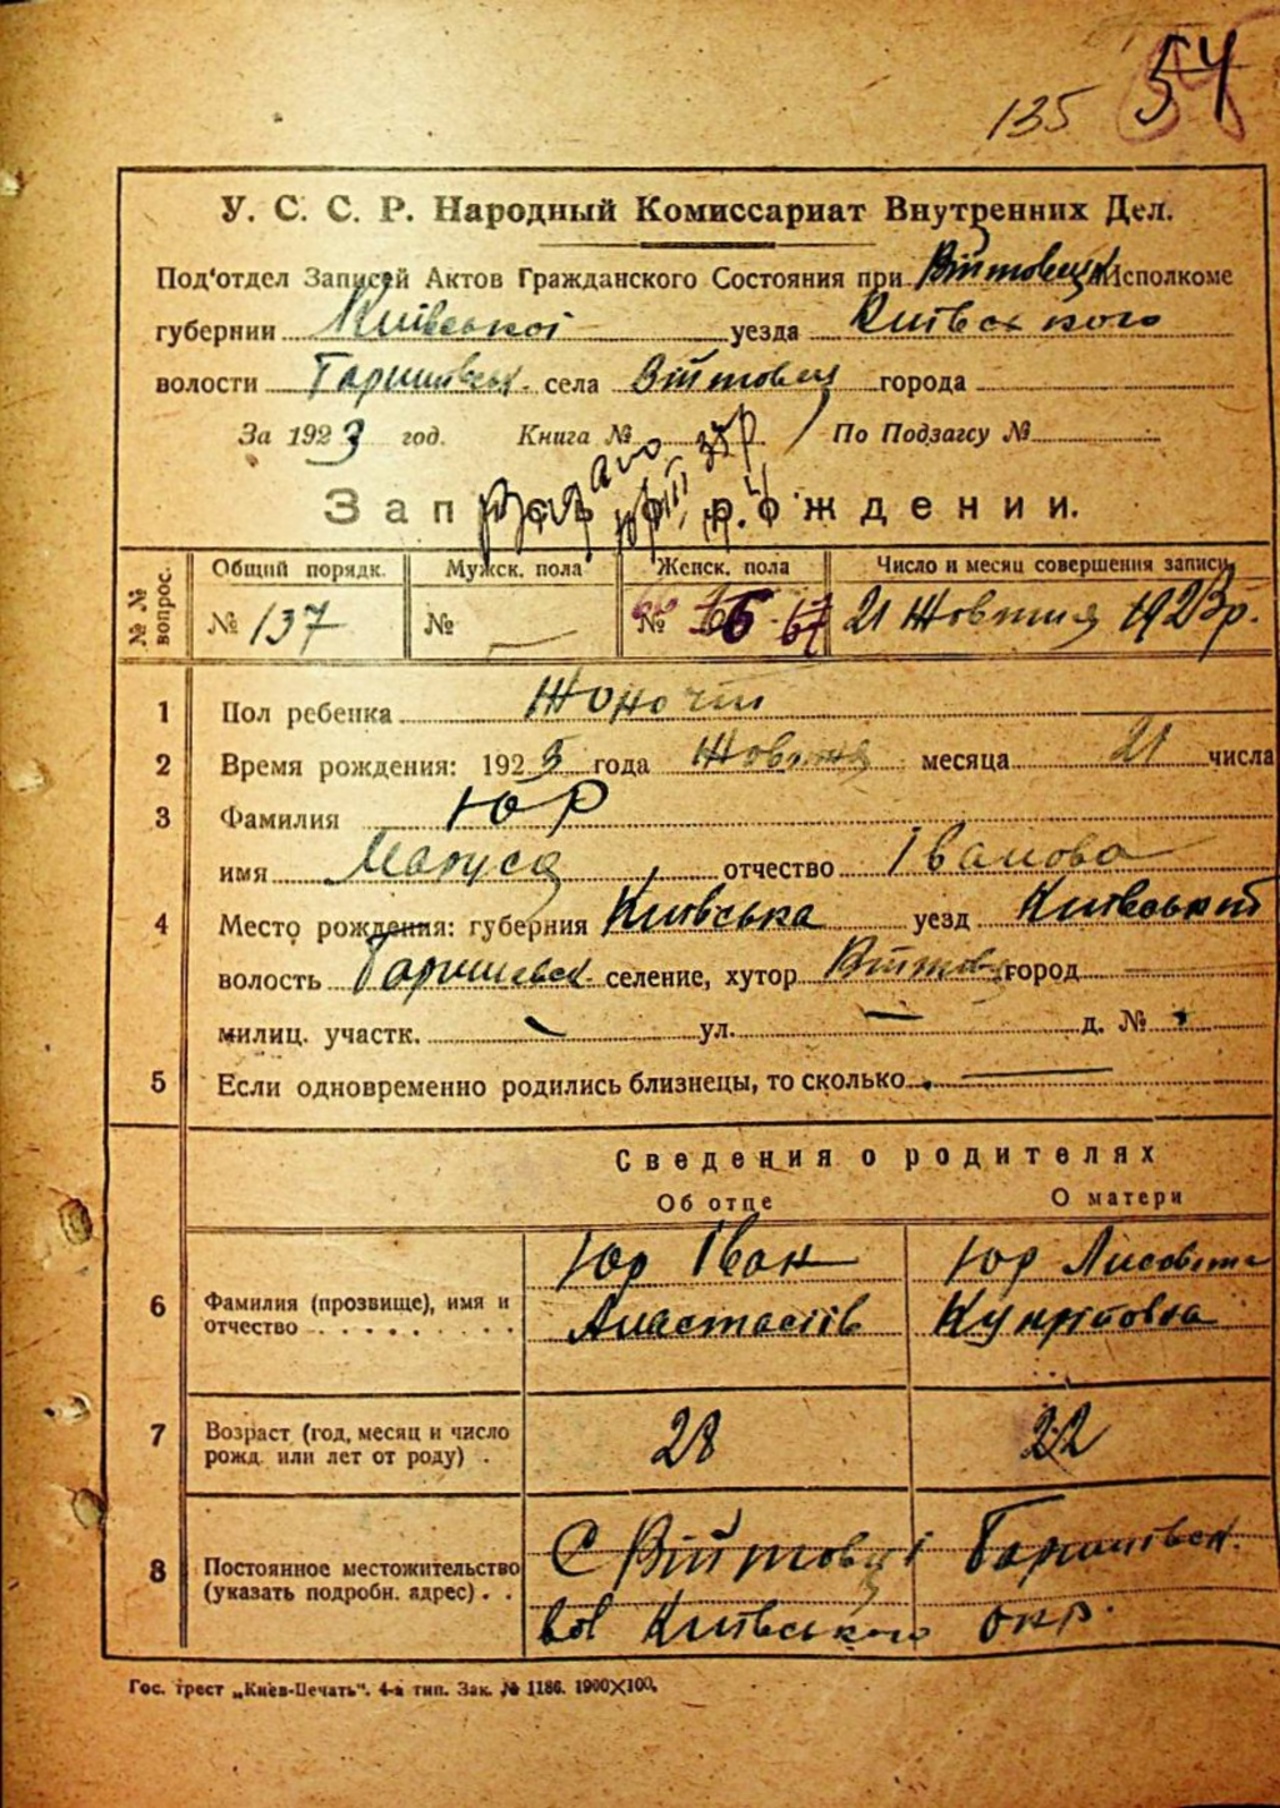 54
135
У. С. С. Р. Народный Комиссариат Внутренних Дел.
Под'отдел Записей Актов Гражданского Состояния при Війтовецк Исполкоме
губернии Київської уезда Київського
волости Баришівськ. села Війтовец города
За 1923 год. Книга № По Подзагсу №
Запись о рождении.
№№ вопрос. Общий порядк. Мужск. пола Женск. пола Число и месяц совершения записи
№ 137 № — № 66 67 21 Жовтня 1923 р.
1 Пол ребенка Жоночій
2 Время рождения: 1923 года Жовтня месяца 21 числа
3 Фамилия Юр
имя Маруся отчество Іванова
4 Место рождения: губерния Київська уезд Київський
волость Баришевск. селение, хутор Війтовц город —
милиц. участк. — ул. — д. №
5 Если одновременно родились близнецы, то сколько —
Сведения о родителях
Об отце О матери
6 Фамилия (прозвище), имя и отчество Юр Іван Анастасіїв Юр Лисовета Купріївна
7 Возраст (год, месяц и число рожд. или лет от роду) 28 22
8 Постоянное местожительство (указать подробн. адрес) С Війтовці Баришівськ. вол Київського окр.
Гос. трест „Киев-Печать". 4-я тип. Зак. № 1186. 1900×100.